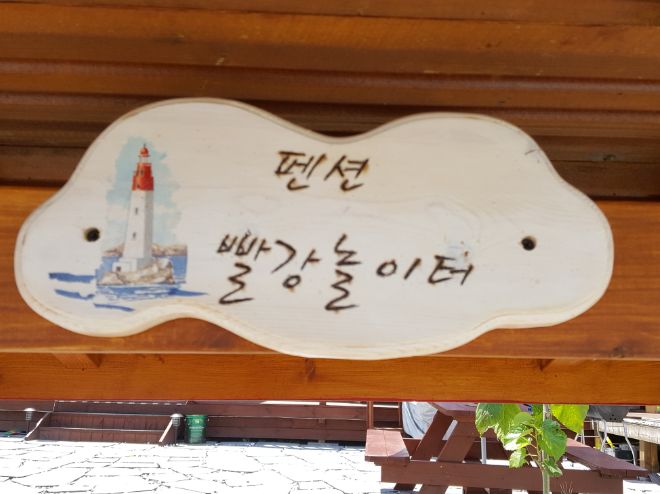 펜션
빨강놀이터